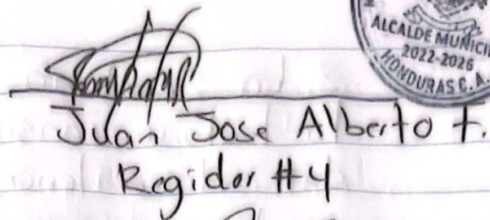 ALCALDE MUNICI
2022-2026
HONDURAS C.A.
Juan Jose Alberto F.
Regidor #4